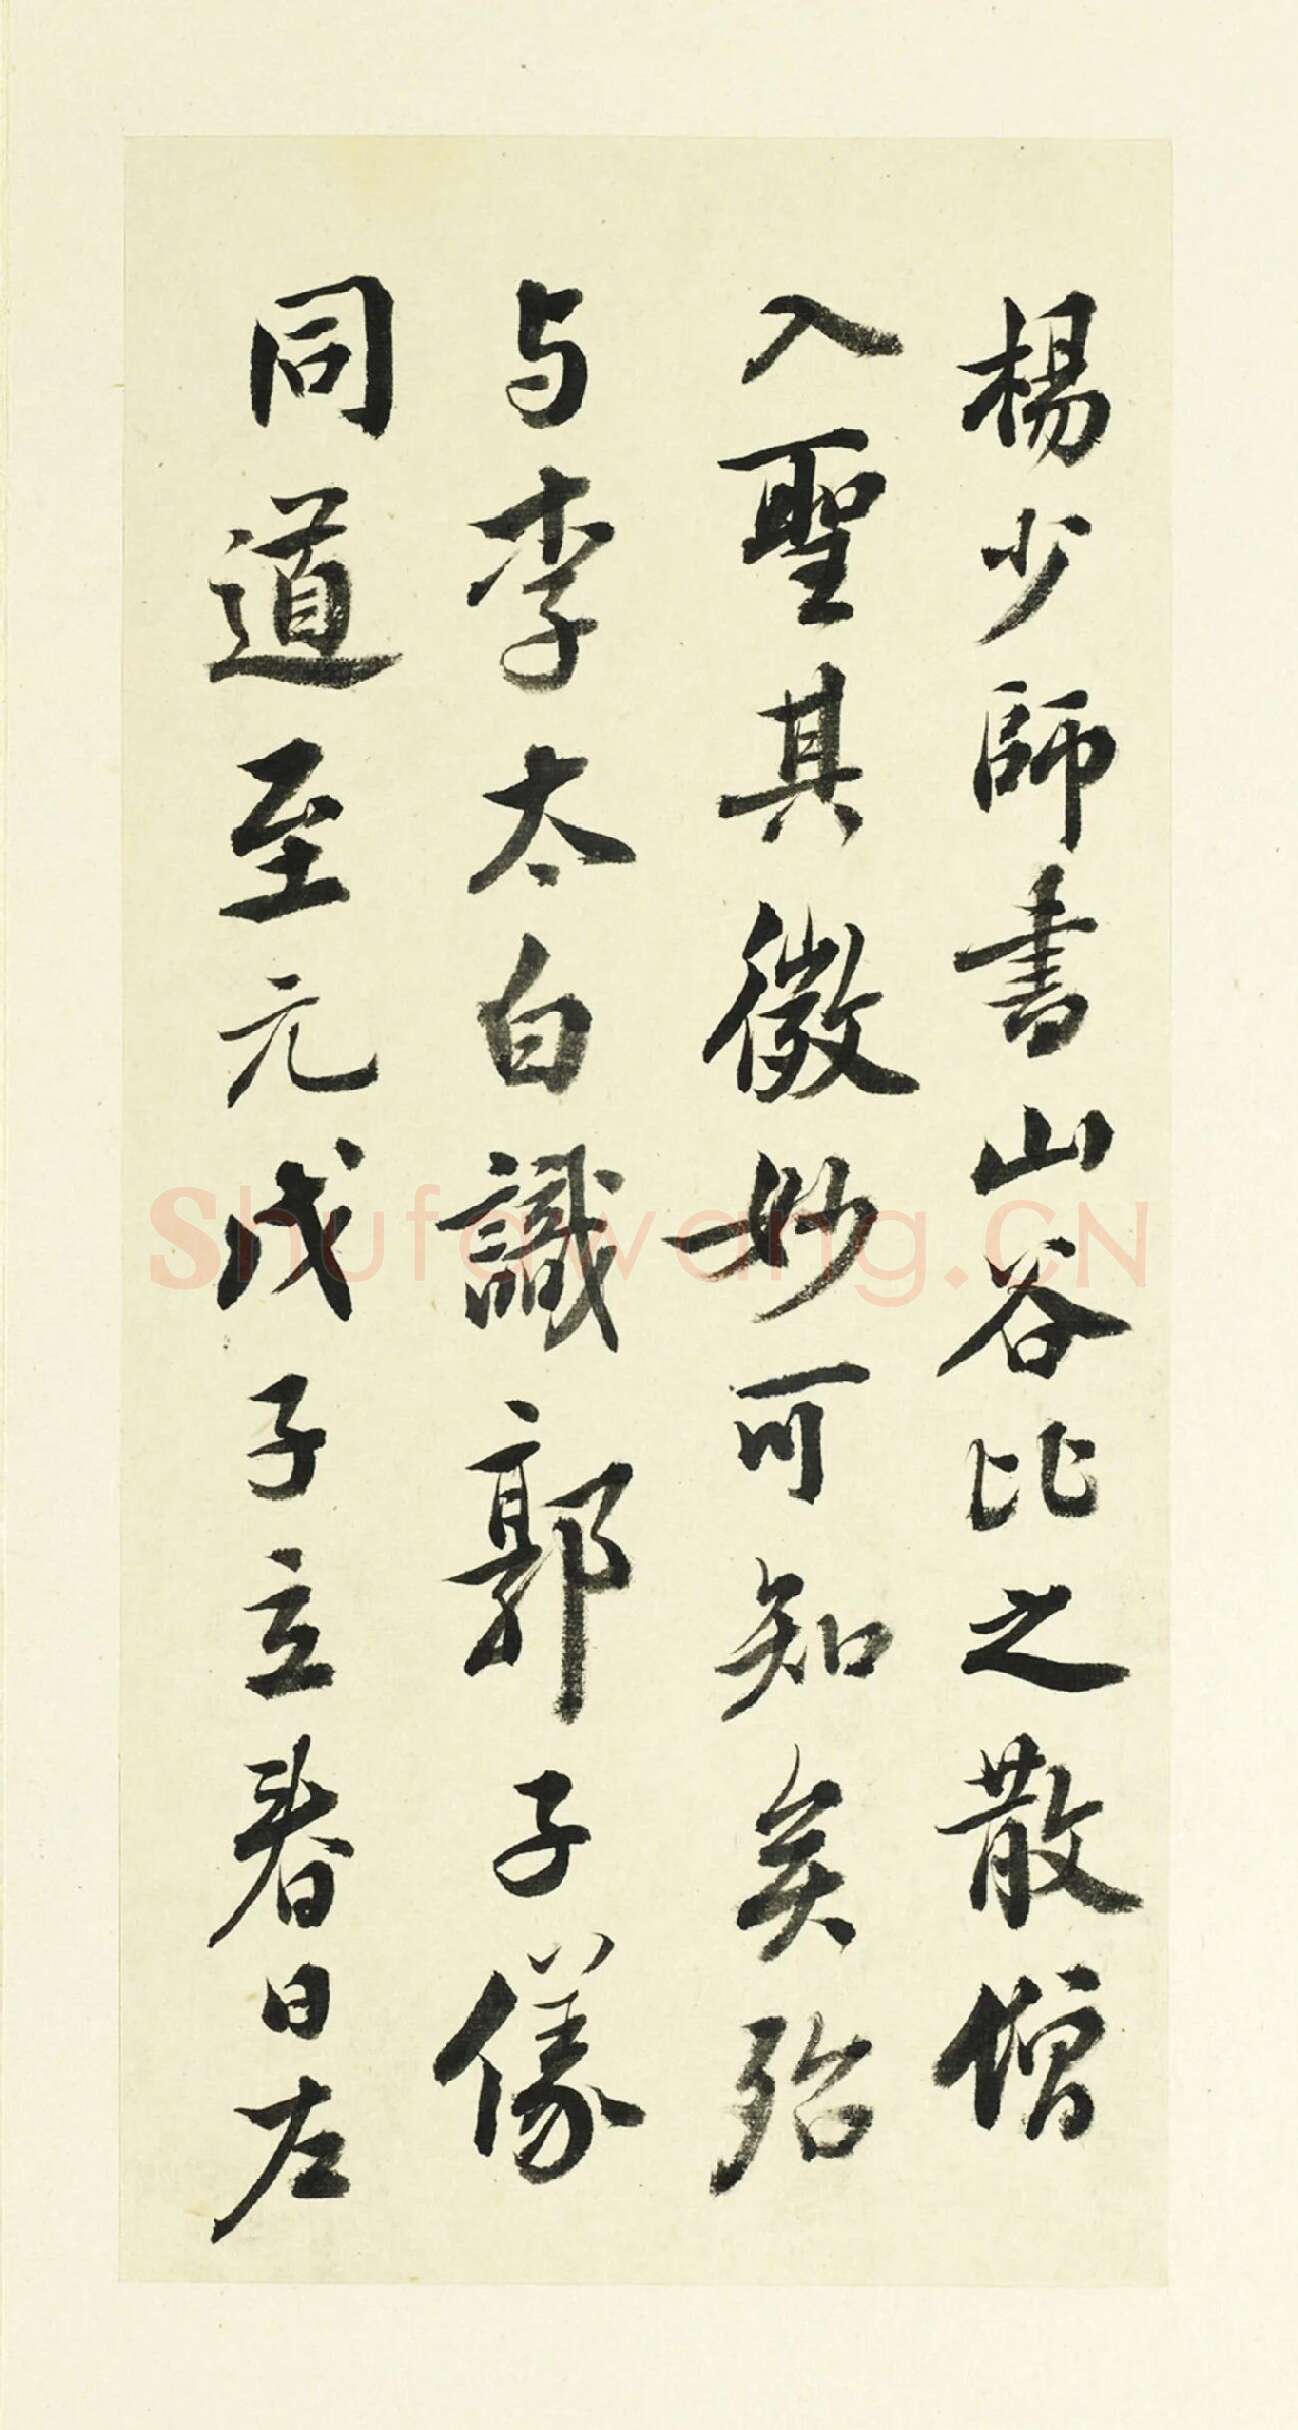 楊少師書山谷比之散僧
入聖其微妙可知矣殆
与李太白識郭子儀
同道至元戊子立春日左
Shufawang.CN